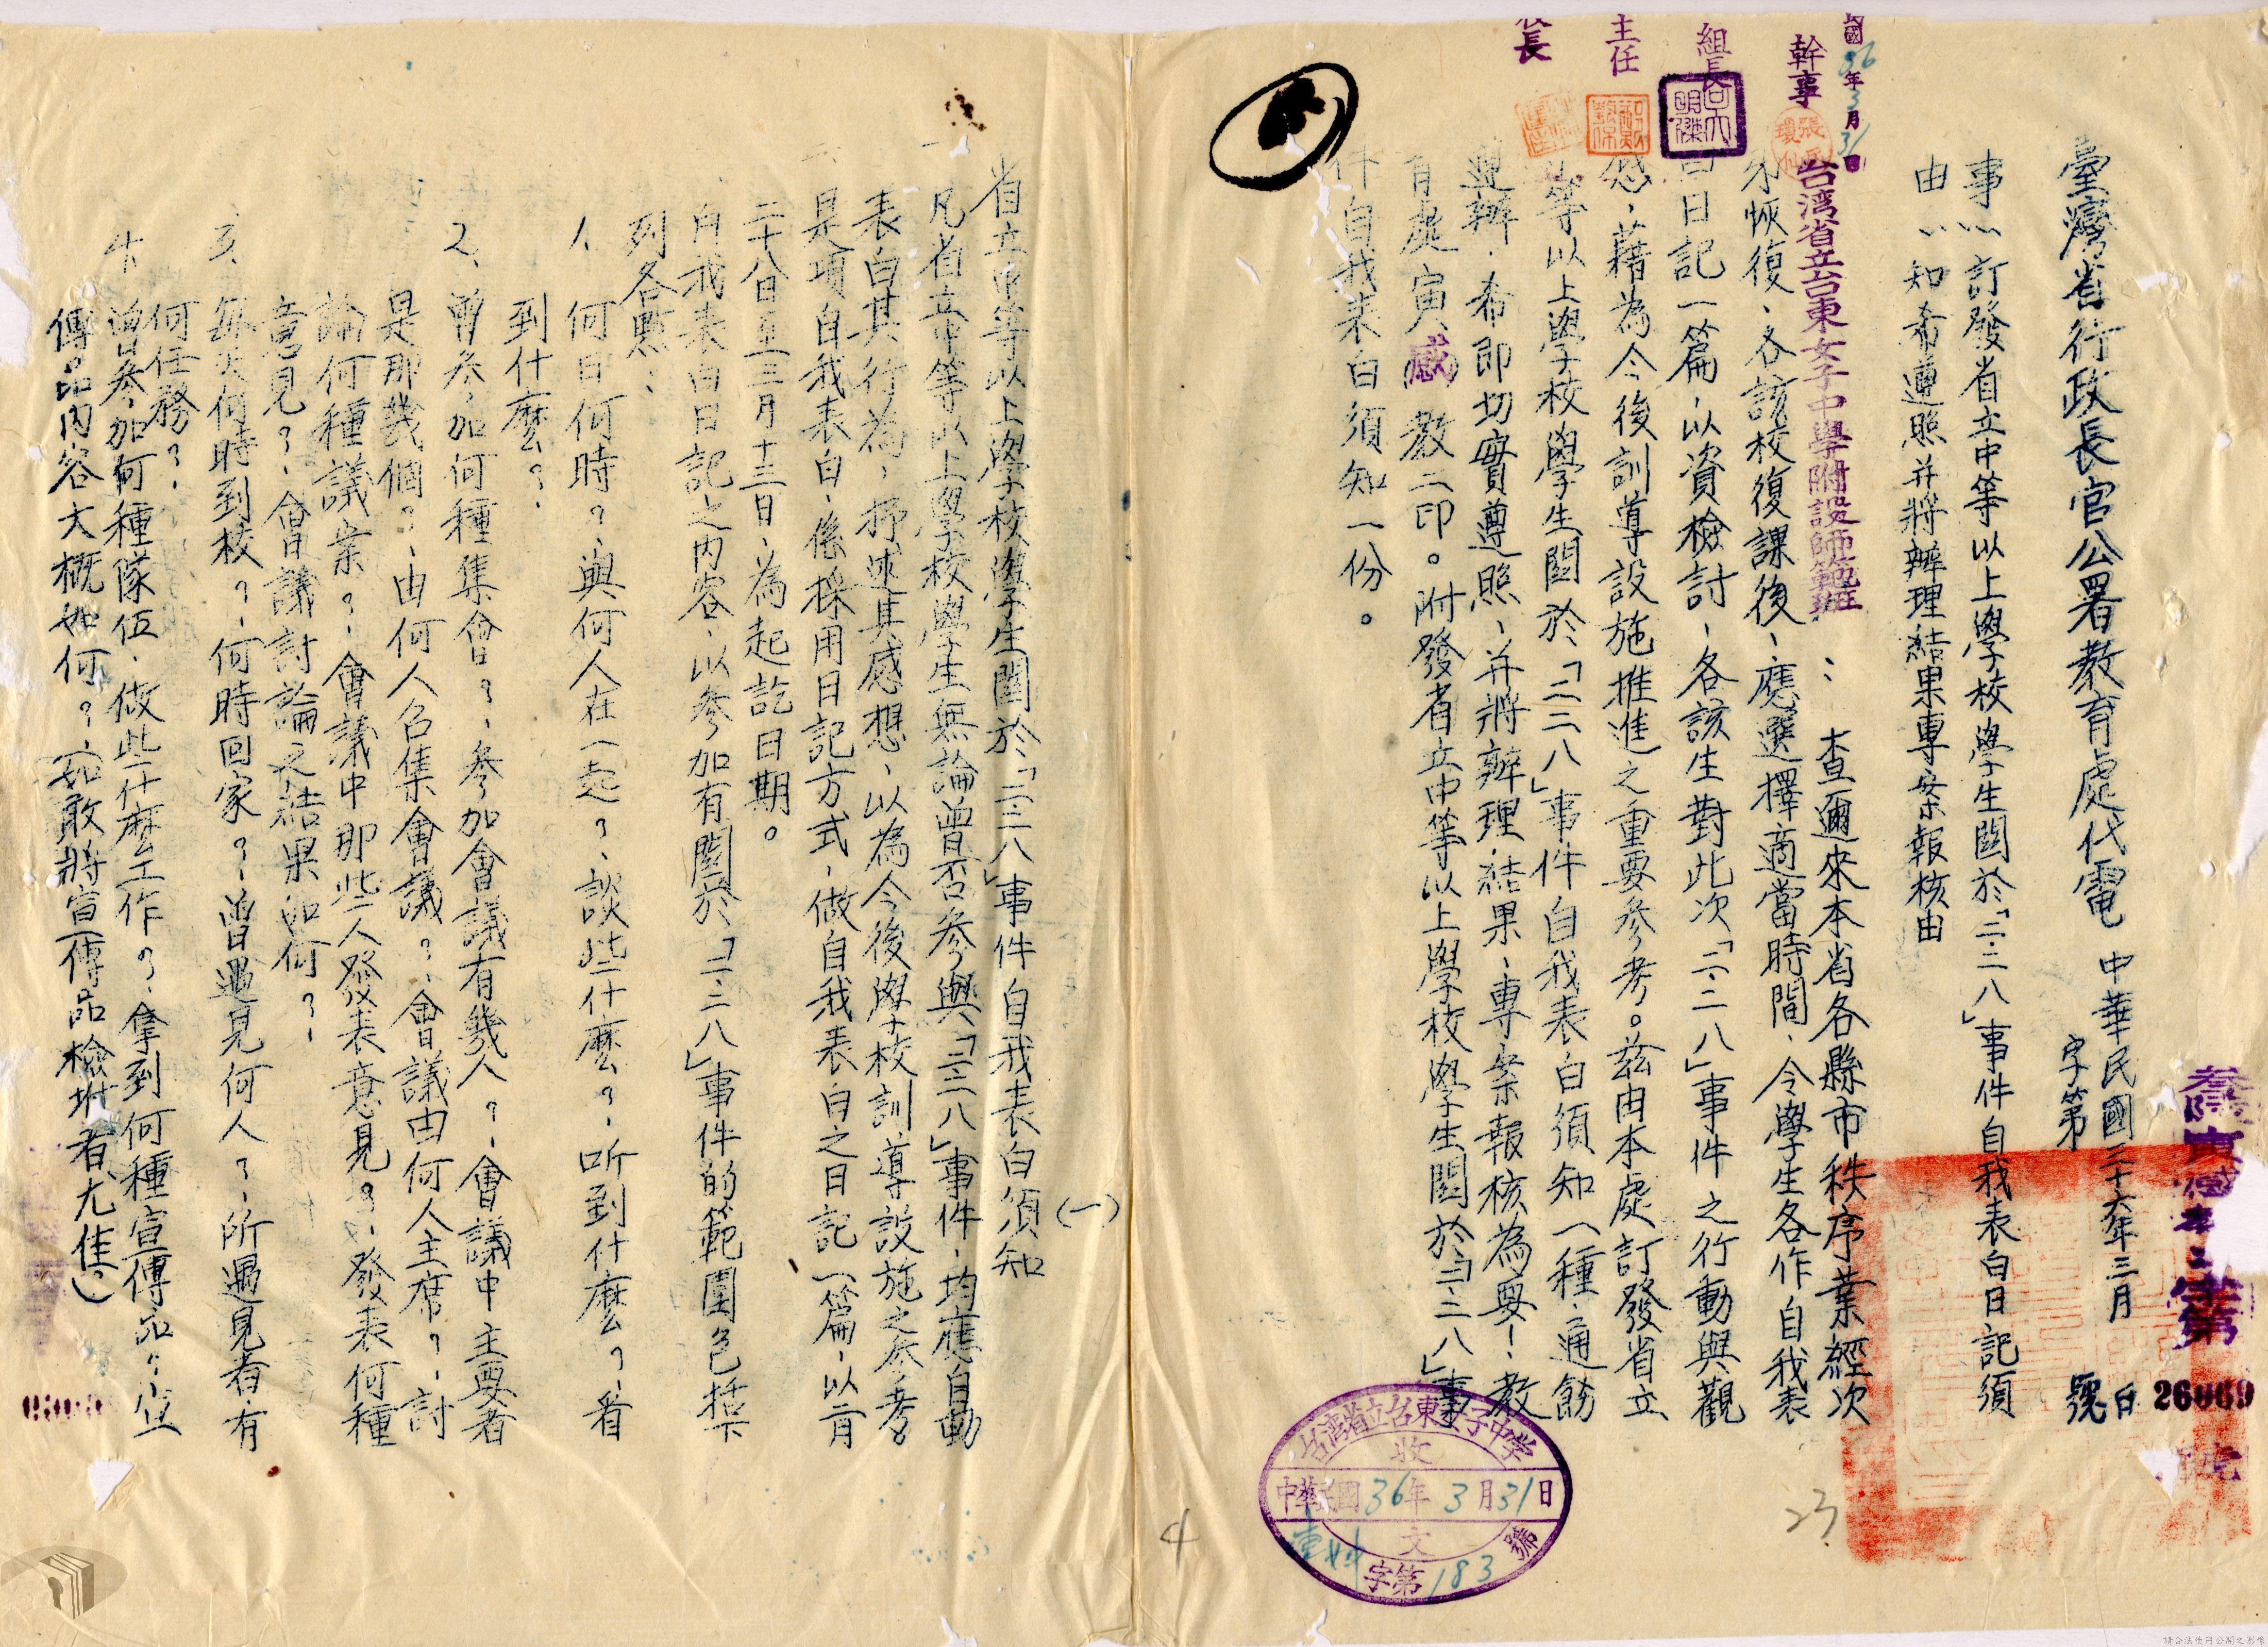 臺灣省行政長官公署教育處代電
中華民國三十六年三月 日
字第 號
26069
事:訂發省立中等以上學校學生關於「二.二八」事件自我表白日記須
由:知希遵照并將辦理結果專案報核由
台湾省立台東女子中學附設師範班:查邇來本省各縣市秩序業經次
恢復、各該校復課後、應選擇適當時間、令學生各作自我表
白日記一篇、以資檢討、各該生對此次「二.二八」事件之行動與觀
感、藉為今後訓導設施推進之重要參考。茲由本處訂發省立
等以上學校學生關於「二二八」事件自我表白須知一種、通飭
遵辦、希即切實遵照、并將辦理結果、專案報核為要!教
育處寅(感)教二印。附發省立中等以上學校學生關於「二.二八」事
件自我表白須知一份。
國36年3月31日
幹事
組長
主任
長
台湾省立台東女子中学
收
中華民國36年3月31日
文
字第183號
23
4
(一)
省立中等以上學校學生關於「二二八」事件自我表白須知
一、凡省立中等以上學校學生無論曾否參與「二二八」事件、均應自動
表白其行為、抒述其感想、以為今後學校訓導設施之參考。
二、是項自我表白、係採用日記方式、做自我表白之日記一篇、以二月
二十八日至三月十三日、為起訖日期。
三、自我表白日記之內容、以參加有關於「二.二八」事件的範圍包括下
列各點:
1、何日何時?、與何人在一起?、談些什麼?、听到什麼?、看
到什麼?.
2、曾參加何種集會?、參加會議有幾人?、會議中主要者
是那幾個?、由何人召集會議?、會議由何人主席?、討
論何種議案?、會議中那些人發表意見?、發表何種
意見?、會議討論之結果如何?、
3、每天何時到校?、何時回家?、曾遇見何人?、所遇見者有
何任務?.
4、曾參加何種隊伍、做些什麼工作?、拿到何種宣傳品?、宣
傳品內容大概如何?、(如敢將宣傳品檢坿者尤佳。)
請合法使用公開之影像